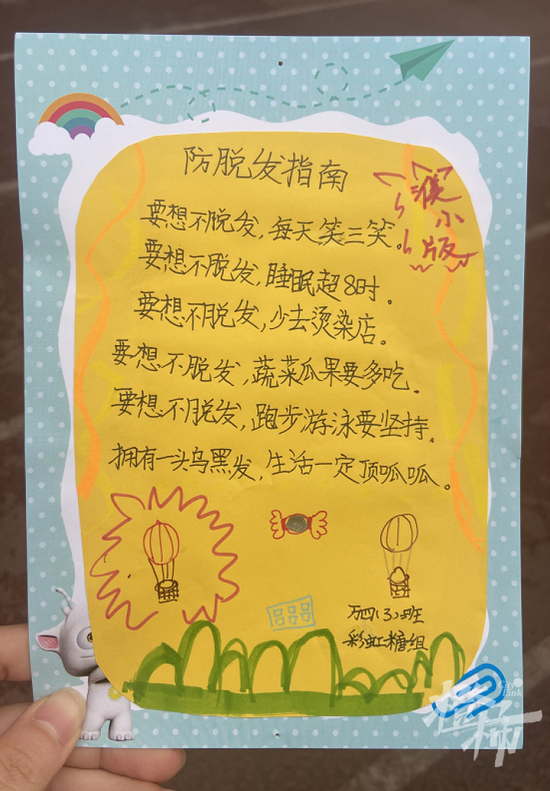 防脱发指南
濮小版
要想不脱发，每天笑三笑。
要想不脱发，睡眠超8时.
要想不脱发，少去烫染店。
要想不脱发，蔬菜瓜果要多吃.
要想不脱发，跑步游泳要坚持。
拥有一头乌黑发，生活一定顶呱呱。
四(3)班
彩虹糖组
City
Link
橙柿